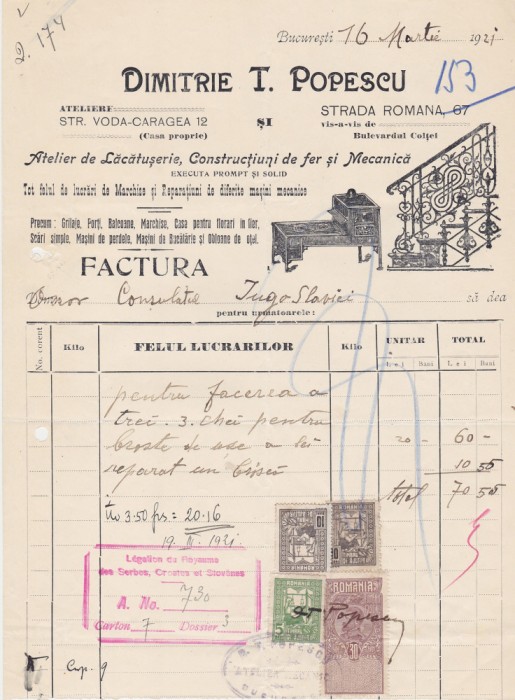 2. 174
București 16 Martie 1921
DIMITRIE T. POPESCU
153
ATELIERE
STR. VODA-CARAGEA 12
(Casa proprie)
ȘI
STRADA ROMANA, 67
vis-a-vis de
Bulevardul Colței
Atelier de Lăcătușerie, Construcțiuni de fer și Mecanică
EXECUTA PROMPT ȘI SOLID
Tot felul de lucrări de Marchize și Reparațiuni de diferite mașini mecanice
Precum: Grilaje, Porți, Balcoane, Marchise, Casa pentru florari in fier,
Scări simple, Mașini de perdele, Mașini de Bucătărie și Obloane de oțel.
FACTURA
Onor Consulatul Jugo Slaviei să dea
pentru urmatoarele:
No. corent Kilo FELUL LUCRARILOR Kilo UNITAR TOTAL
Lei Bani Lei Bani
pentru facerea a
trei 3. chei pentru
broste de usе a lei 20 - 60 -
reparat un 10 55
total 70 55
3.50 frs = 20.16
19. III. 1921
Légation du Royaume
des Serbes, Croates et Slovènes
A. No. 730
Carton 7 Dossier 3
10
10
5
ROMANIA
30
Popescu
D. T. POPESCU
ATELIER MECANIC
Cap. 9